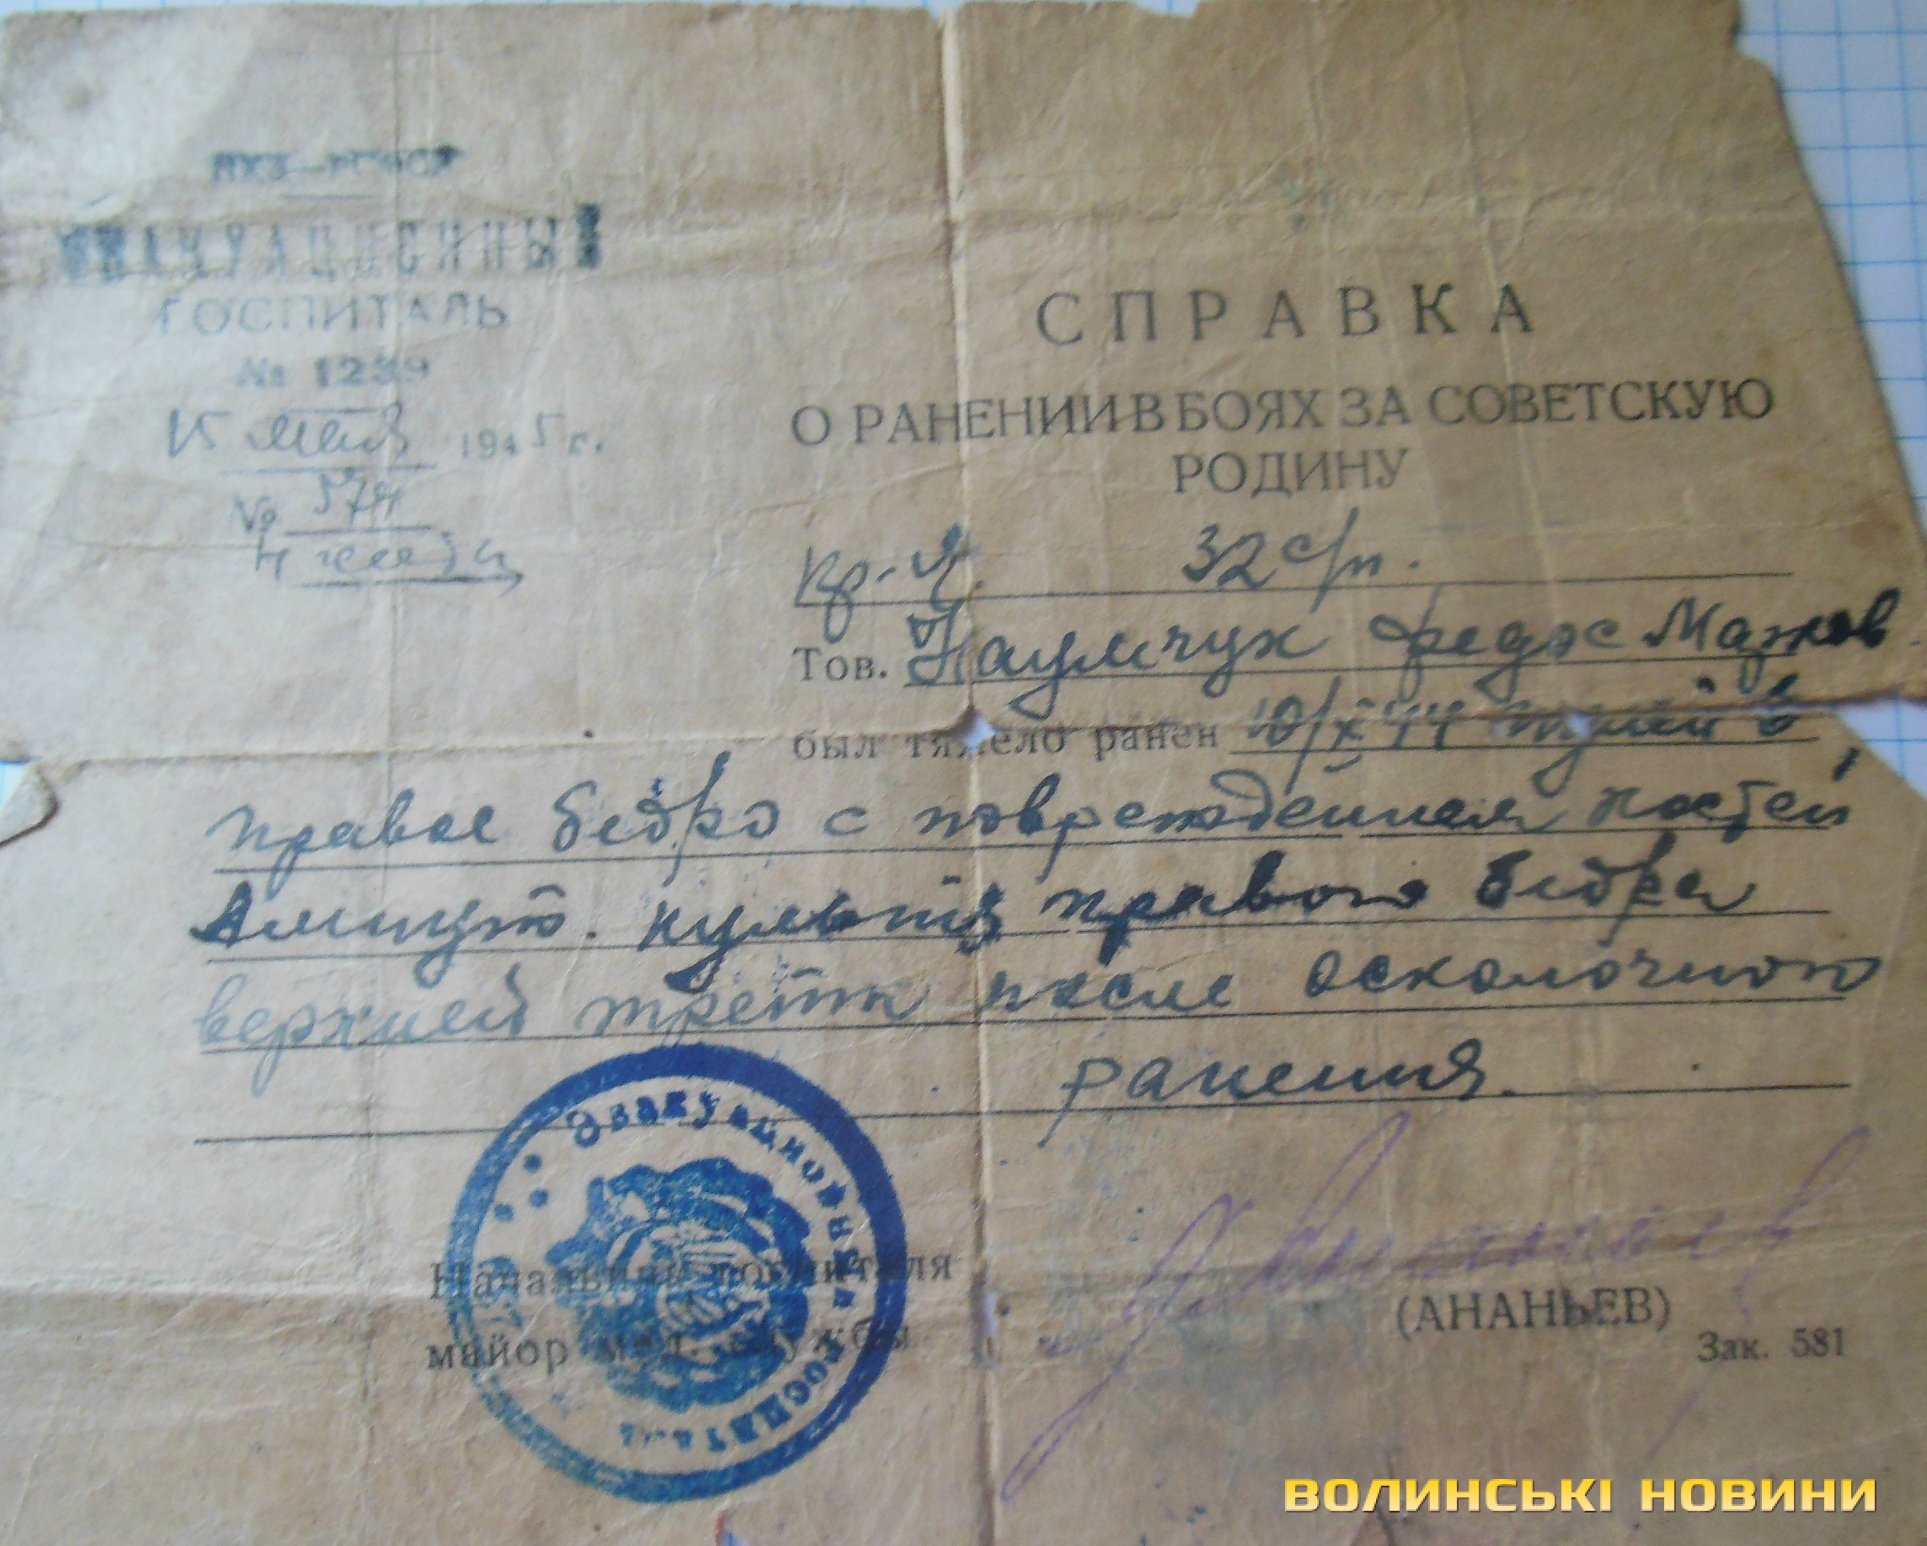 НКЗ—РСФСР
ЭВАКУАЦИОННЫЙ
ГОСПИТАЛЬ
№ 1239
15 мая 1945 г.
№ 574
СПРАВКА
О РАНЕНИИ В БОЯХ ЗА СОВЕТСКУЮ
РОДИНУ
Кр-ц. 32 с/п.
Тов. Наумчук Федос
был тяжело ранен 10/X 44 пулей в
правое бедро с повреждением костей
Ампут. культя правого бедра
верхней трети после осколочного
ранения.
Эвакуационный госпиталь
Начальник госпиталя
майор мед. службы
(АНАНЬЕВ)
Зак. 581
ВОЛИНСЬКІ НОВИНИ